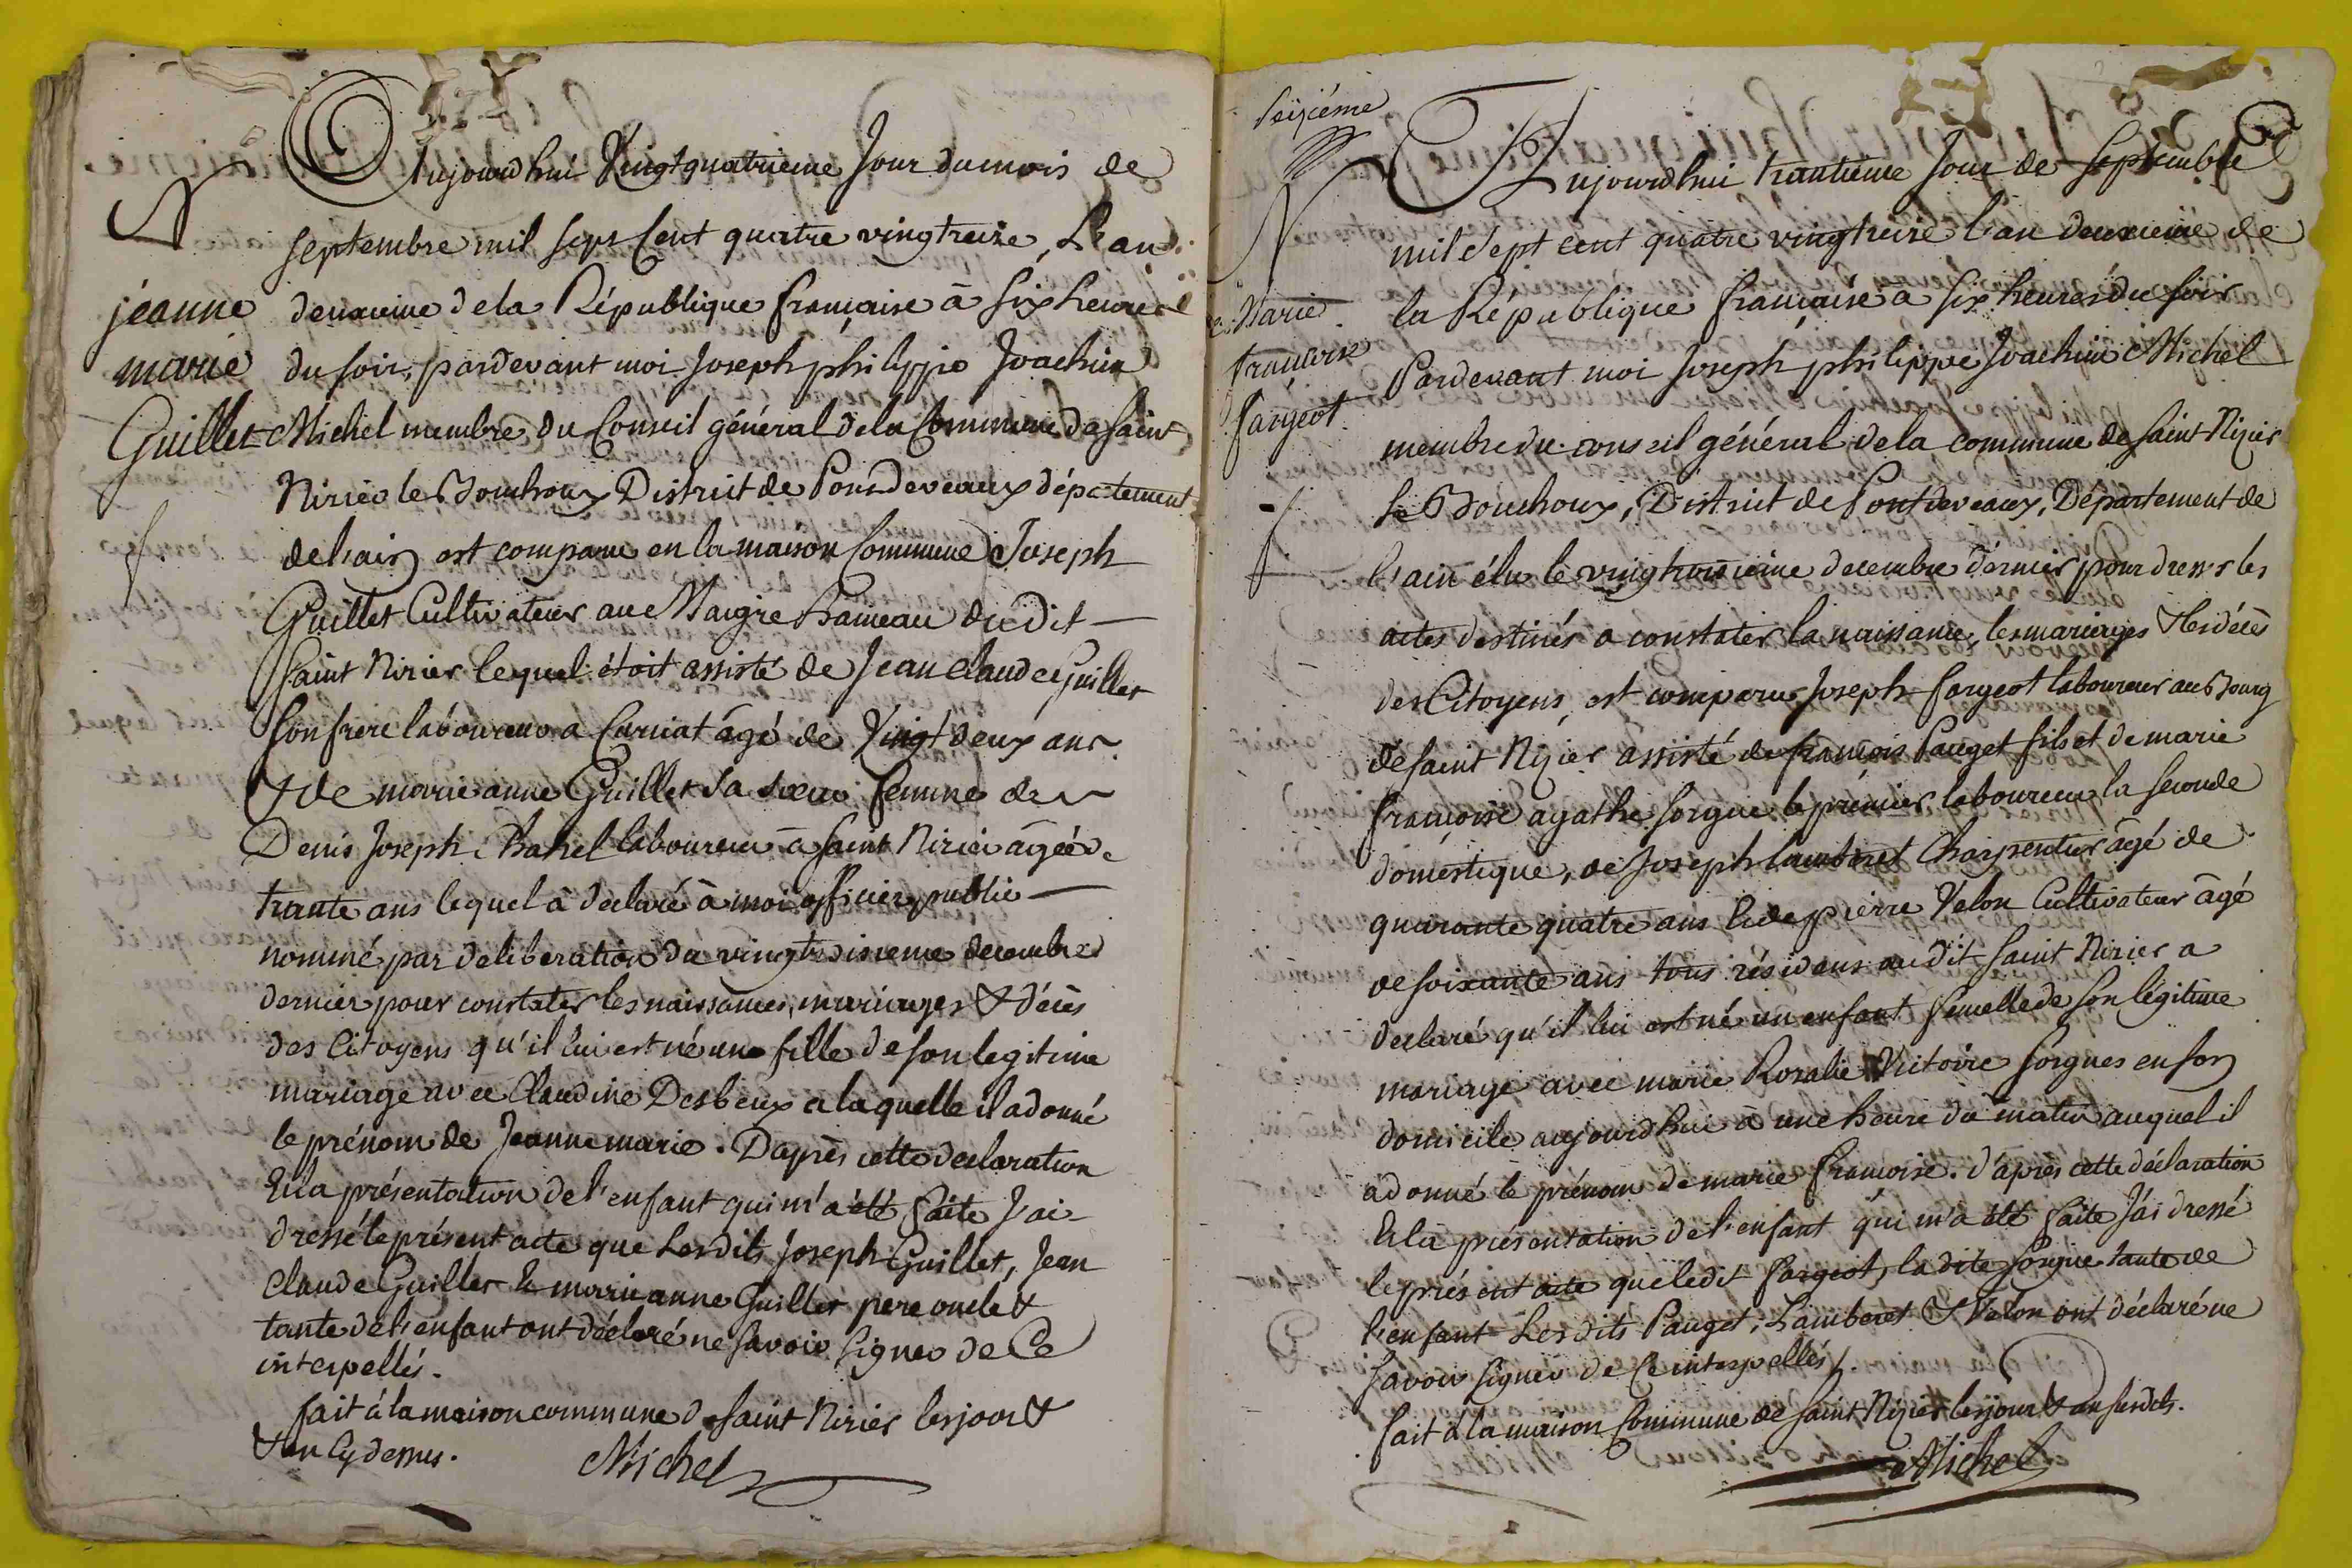 N
jeanne
marie
Guillet
f.
Aujourdhui Vingtquatrieme Jour dumois de
septembre mil sept Cent quatre vingtreize, L'an
deuxieme dela République francaise à six heure
du soir, pardevant moi Joseph philippe Joachim
Michel membre du Conseil général dela Commune de saint
Nirier le Bouchoux District de Pondeveaux département
delain est comparu en la maison Commune Joseph
Guillet Cultivateur au Maigre hameau du Dit
saint Nirier lequel étoit assisté de Jean claude Guillet
son frere laboureur a Curciat agé de Vingt deux ans
& de marie anne Guillet sa soeur femme de
Denis Joseph laboureur a saint Nirier agée de
trante ans lequel à declaré à moi officier public
nommé par deliberation du vingtroisieme decembre
dernier pour constater les naissances, mariages & décès
des Citoyens qu'il lui est né une fille de son legitime
mariage avec Claudine Desbeux a laquelle il a donné
le prénom de Jeanne marie. D'après cette declaration
Et la présentation del'enfant qui m'a été faite J'ai
dressé le présent acte que Lesdits Joseph Guillet, Jean
Claude Guillet Et marie anne Guillet pere oncle &
tante del'enfant ont déclaré ne savoir signer de Ce
interpellés.
fait à la maison commune de saint Nirier les jour &
& an Cy dessus.
Michel
seiziéme
N
Marie
francoise
fargeot
f
Aujourdhui trantieme Jour de septembre
mil sept cent quatre vingtreise l'an deuxieme de
la République francaise a six heures du soir
Pardevant moi Joseph philippe Joachim Michel
membre du conseil général dela commune de saint Nizier
le Bouchoux, District de Pontdeveaux, Département de
l'ain élu le vingtroisieme decembre dernier pour dresser les
actes destinés a constater la naissance, les mariages & les décès
des Citoyens, est comparu Joseph fargeot laboureur au Bourg
de saint Nizier assisté de francois Pauget fils et de marie
francoise agathe sorgue le premier laboureur la seconde
domestique, de Joseph lamberet Charpentier âgé de
quarante quatre ans Et de pierre Velon Cultivateur âgé
de soixante ans tous résidens audit saint Nirier a
declaré qu'il lui est né un enfant femelle de son légitime
mariage avec marie Rosalie Victoire sorgues en son
domicile aujourdhui à une heure du matin auquel il
a donné le prénom de marie francoise. d'après cette déclaration
Et la présentation del'enfant qui m'a été faite J'ai dressé
le présent acte que ledit fargeot, la dite sorgue tante de
l'enfant Lesdits Pauget, Lamberet & Velon ont déclaré ne
savoir signer de Ce interpellés.
fait à la maison Commune de saint Nizier les jour & an susdits.
Michel